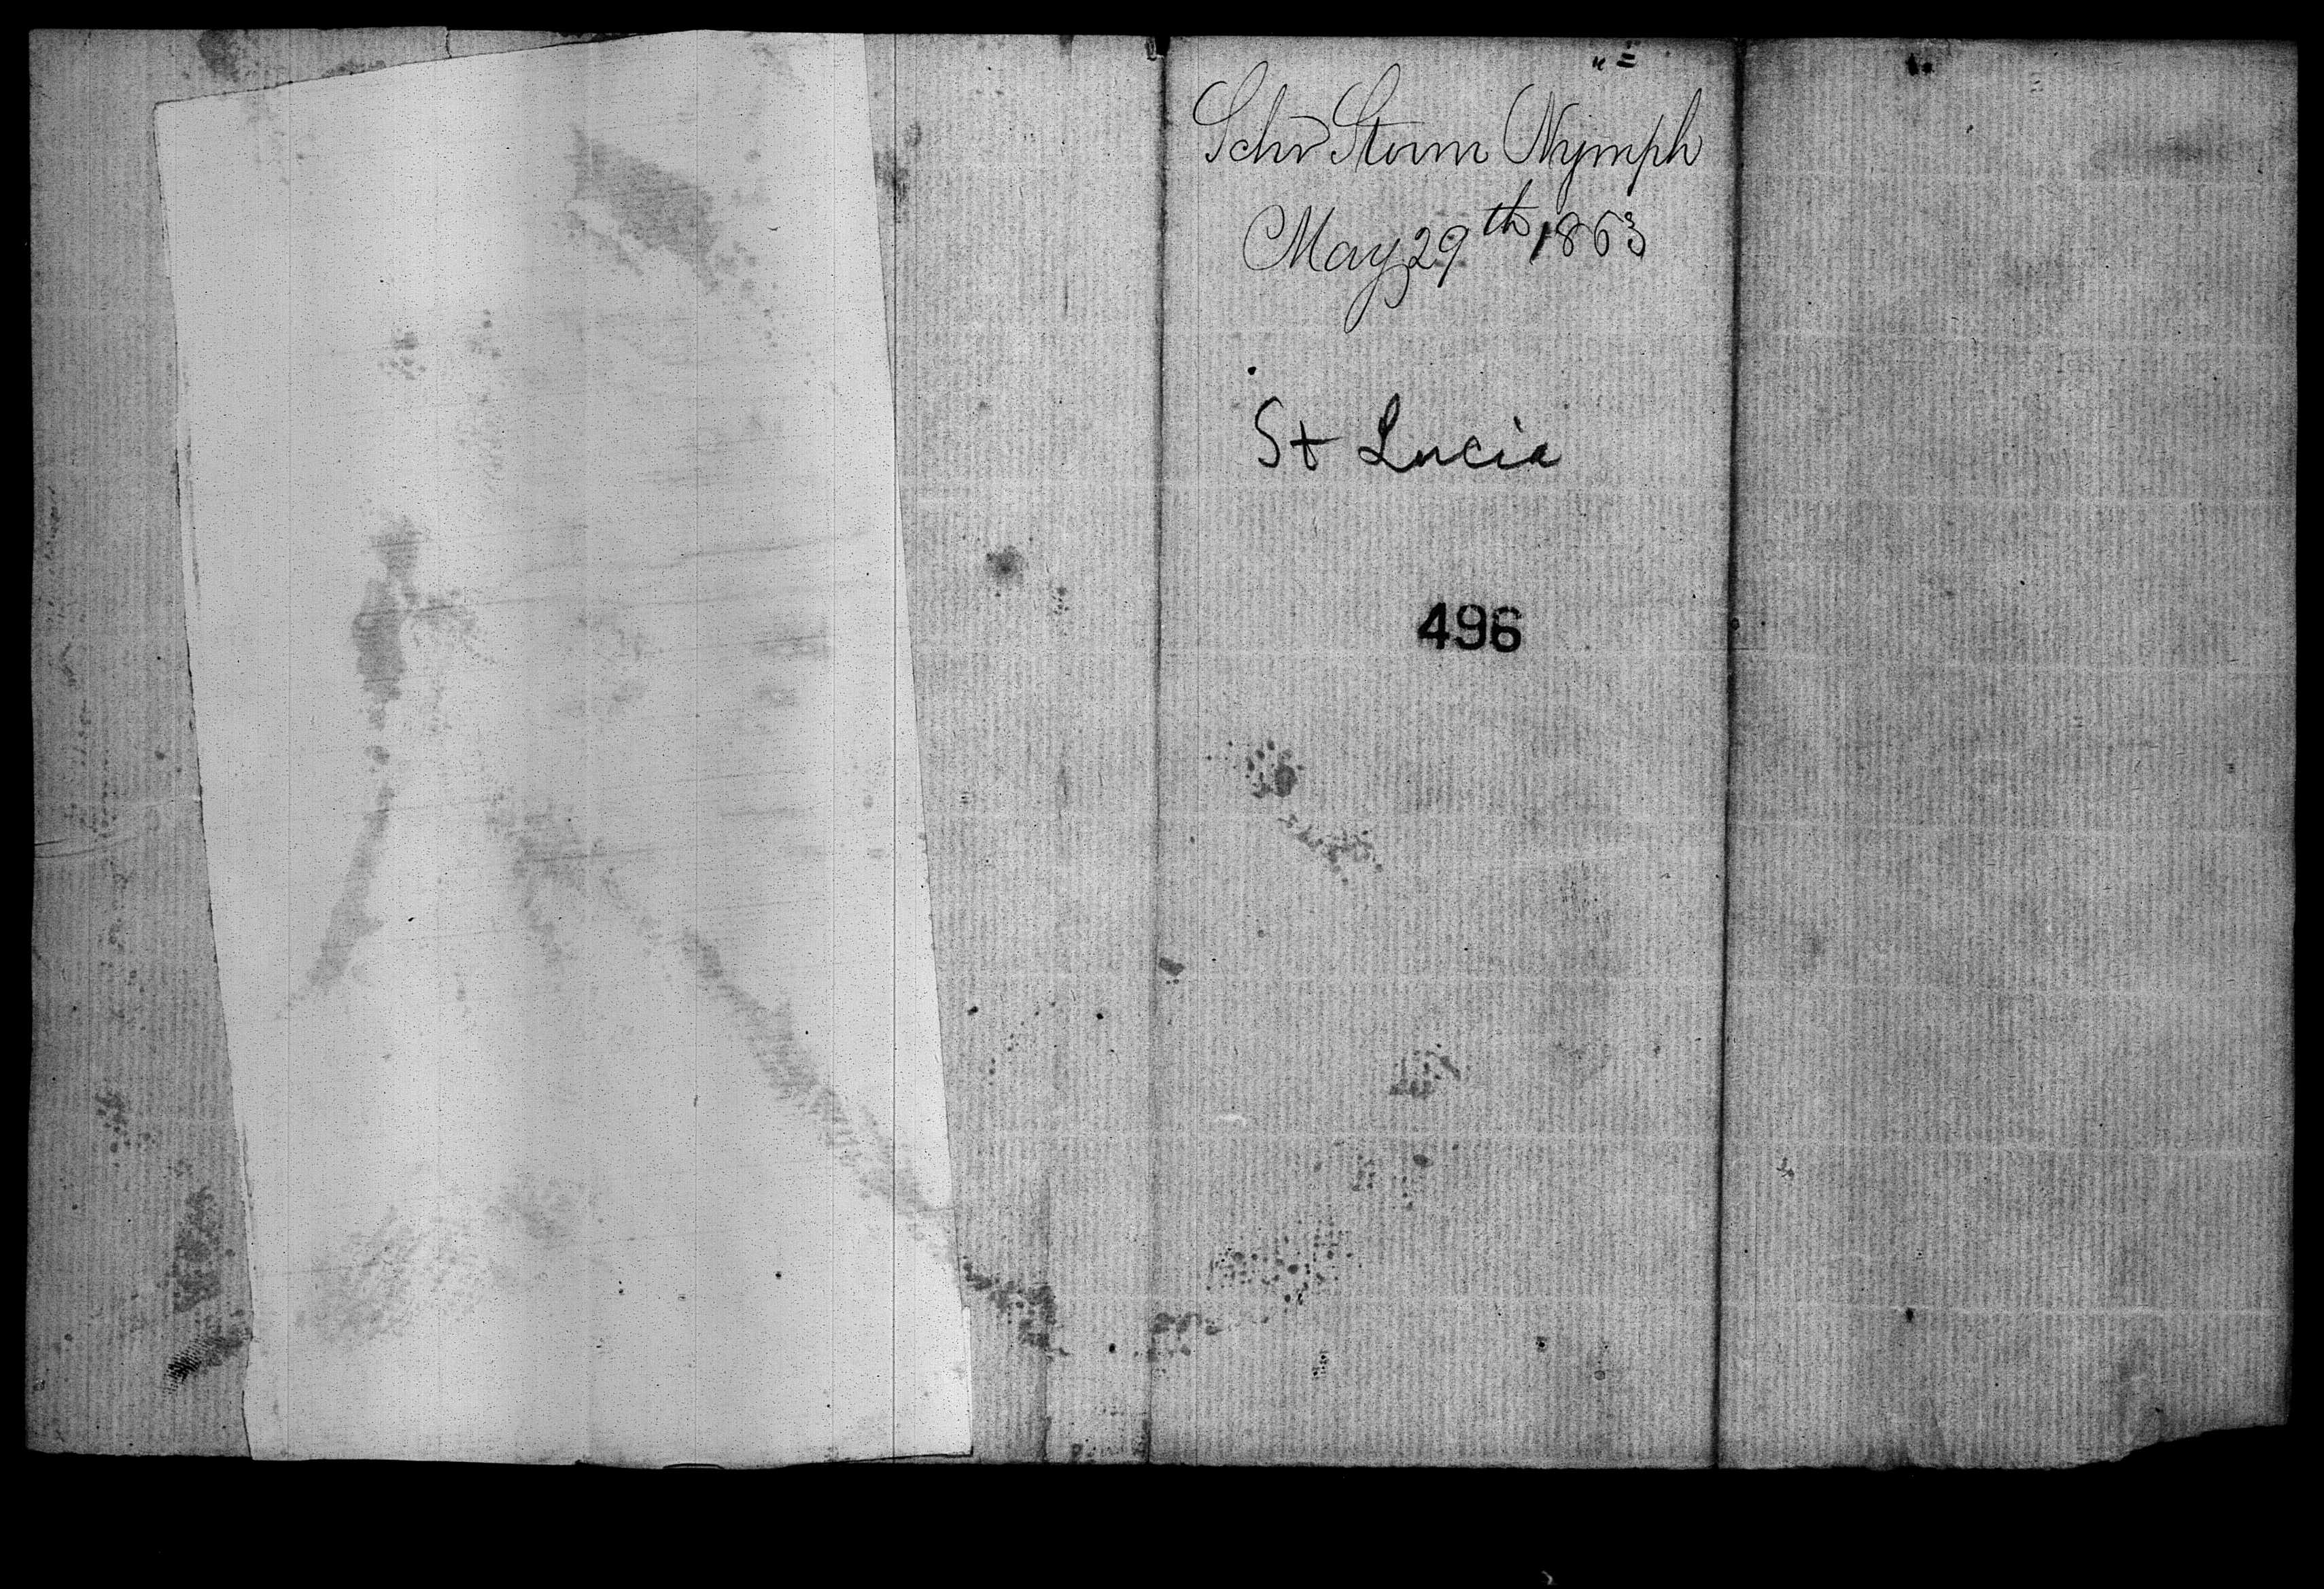 Schr Storm Nymph
May 29th 1863
St Lucia
496